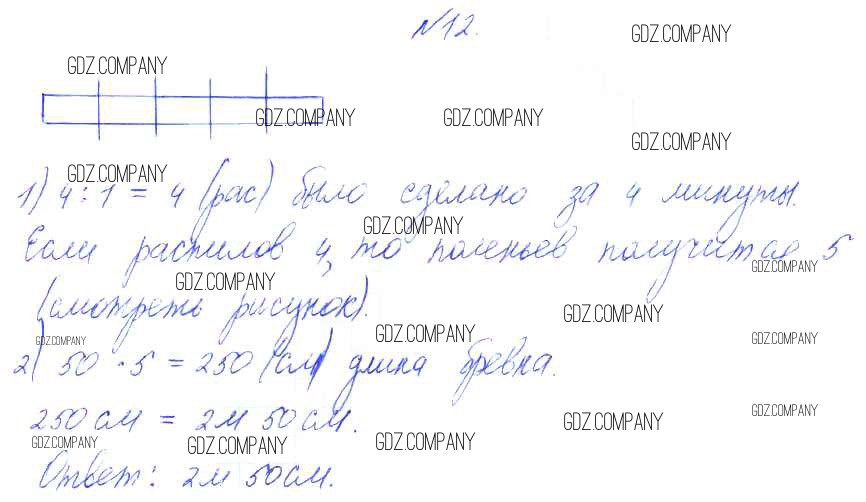 №12.
GDZ.COMPANY
GDZ.COMPANY
GDZ.COMPANY
GDZ.COMPANY
GDZ.COMPANY
GDZ.COMPANY
1) 4 : 1 = 4 (рас) было сделано за 4 минуты.
GDZ.COMPANY
Если распилов 4, то поленьев получится 5
GDZ.COMPANY
GDZ.COMPANY
(смотреть рисунок).
GDZ.COMPANY
GDZ.COMPANY
GDZ.COMPANY
GDZ.COMPANY
2) 50 · 5 = 250 (см) длина бревна.
250 см = 2м 50см.
GDZ.COMPANY
GDZ.COMPANY
GDZ.COMPANY
GDZ.COMPANY
GDZ.COMPANY
Ответ: 2м 50см.